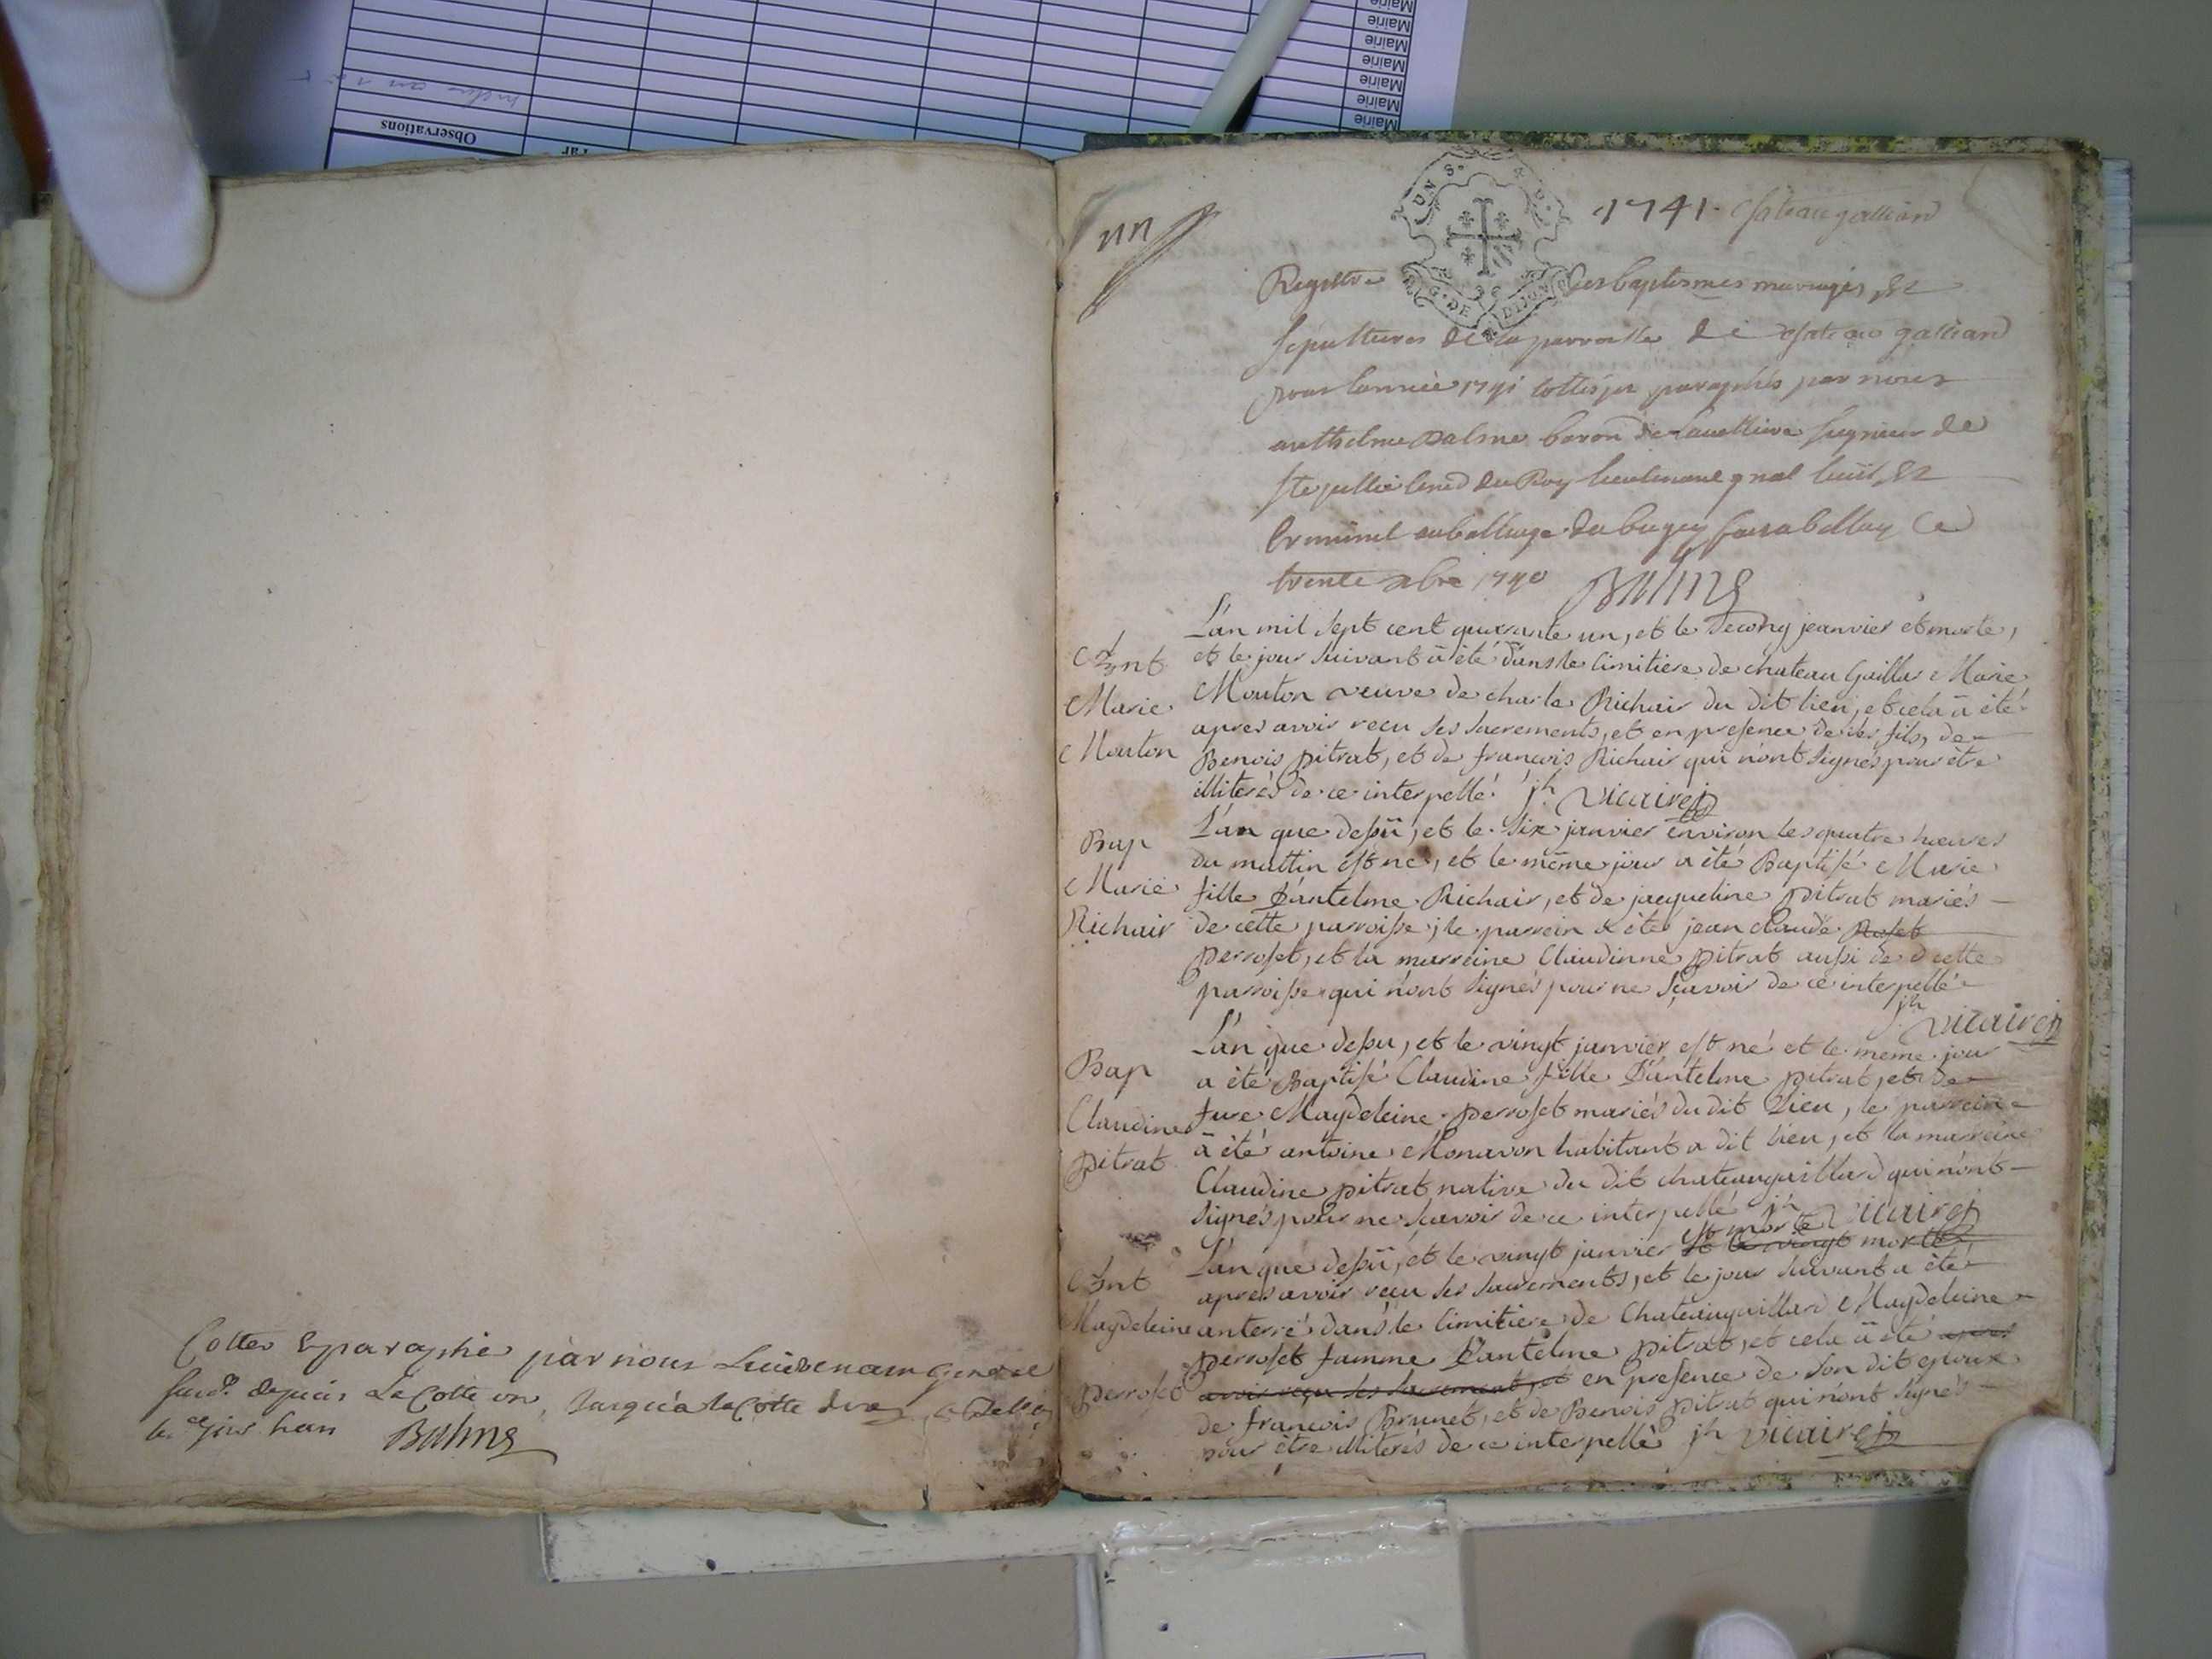 Mairie
Mairie
Mairie
Mairie
Mairie
Mairie
Mairie
Observations
Par
Cottes & paraphé par nous Lieutenant General
susd. depuis La Cotte un, Jusqu'a la Cotte dix
Balme
un
1741. Chateau galliard
DIJON
Registre des baptesmes mariages, &
sepultures de la parroisse de Chateau galliard
pour l'année 1741 cottés, et paraphés par nous
anthelme Balme baron de seigneur de
Ste jullie Cons. du Roy lieutenant gnal Civil, &
Criminel au balliage du bugey a bellay Ce
trente xbre 1740 Balme
L'an mil sept cent quarante un, et le second jeanvier et morte,
et le jour suivant a été dans le cimitiere de chateau Gaillar Marie
Mouton veuve de charle Richair du dit lieu, et cela a été
apres avoir recu ses sacrements, et en presence de ses fils, de
Benois pitrat, et de francois Richair qui n'ont signés pour être
illiterés de ce interpellé. jh vicaire
Ent
Marie
Mouton
L'an que dessu, et le six janvier environ les quatre heures
du mattin est né, et le même jour a été Baptisé Marie
fille D'antelme Richair, et de jacqueline pitrat mariés
de cette parroisse, le parrein a été jean claude Roset
perroset, et la marreine Claudinne pitrat aussi de d cette
parroisse qui n'ont signés pour ne sçavoir de ce interpellé
jh vicaire
Bap
Marie
Richair
L'an que dessu, et le vingt janvier est né et le meme jour
a été Baptisé Claudine fille D'antelme pitrat, et de
fure Magdeleine perroset mariés du dit Lieu, le parrein
a été antoine Monavon habitant a dit lieu, et la marreine
Claudine pitrat native du dit chateaugaillard qui n'ont
signés pour ne sçavoir de ce interpellé jh vicaire
Bap
Claudine
pitrat
est morte
L'an que dessu, et le vingt janvier et le vingt morte
apres avoir recu ses sacrements, et le jour suivant a été
anterré dans le cimitiere de Chateaugaillard Magdeleine
perroset famme D'antelme pitrat, et cela a été apres
avoir reçu ses sacrement, et en presence de son dit epoux
de francois Brunet, et de Benois pitrat qui n'ont signés
pour être illiterés de ce interpellé jh vicaire
Ent
Magdeleine
perroset